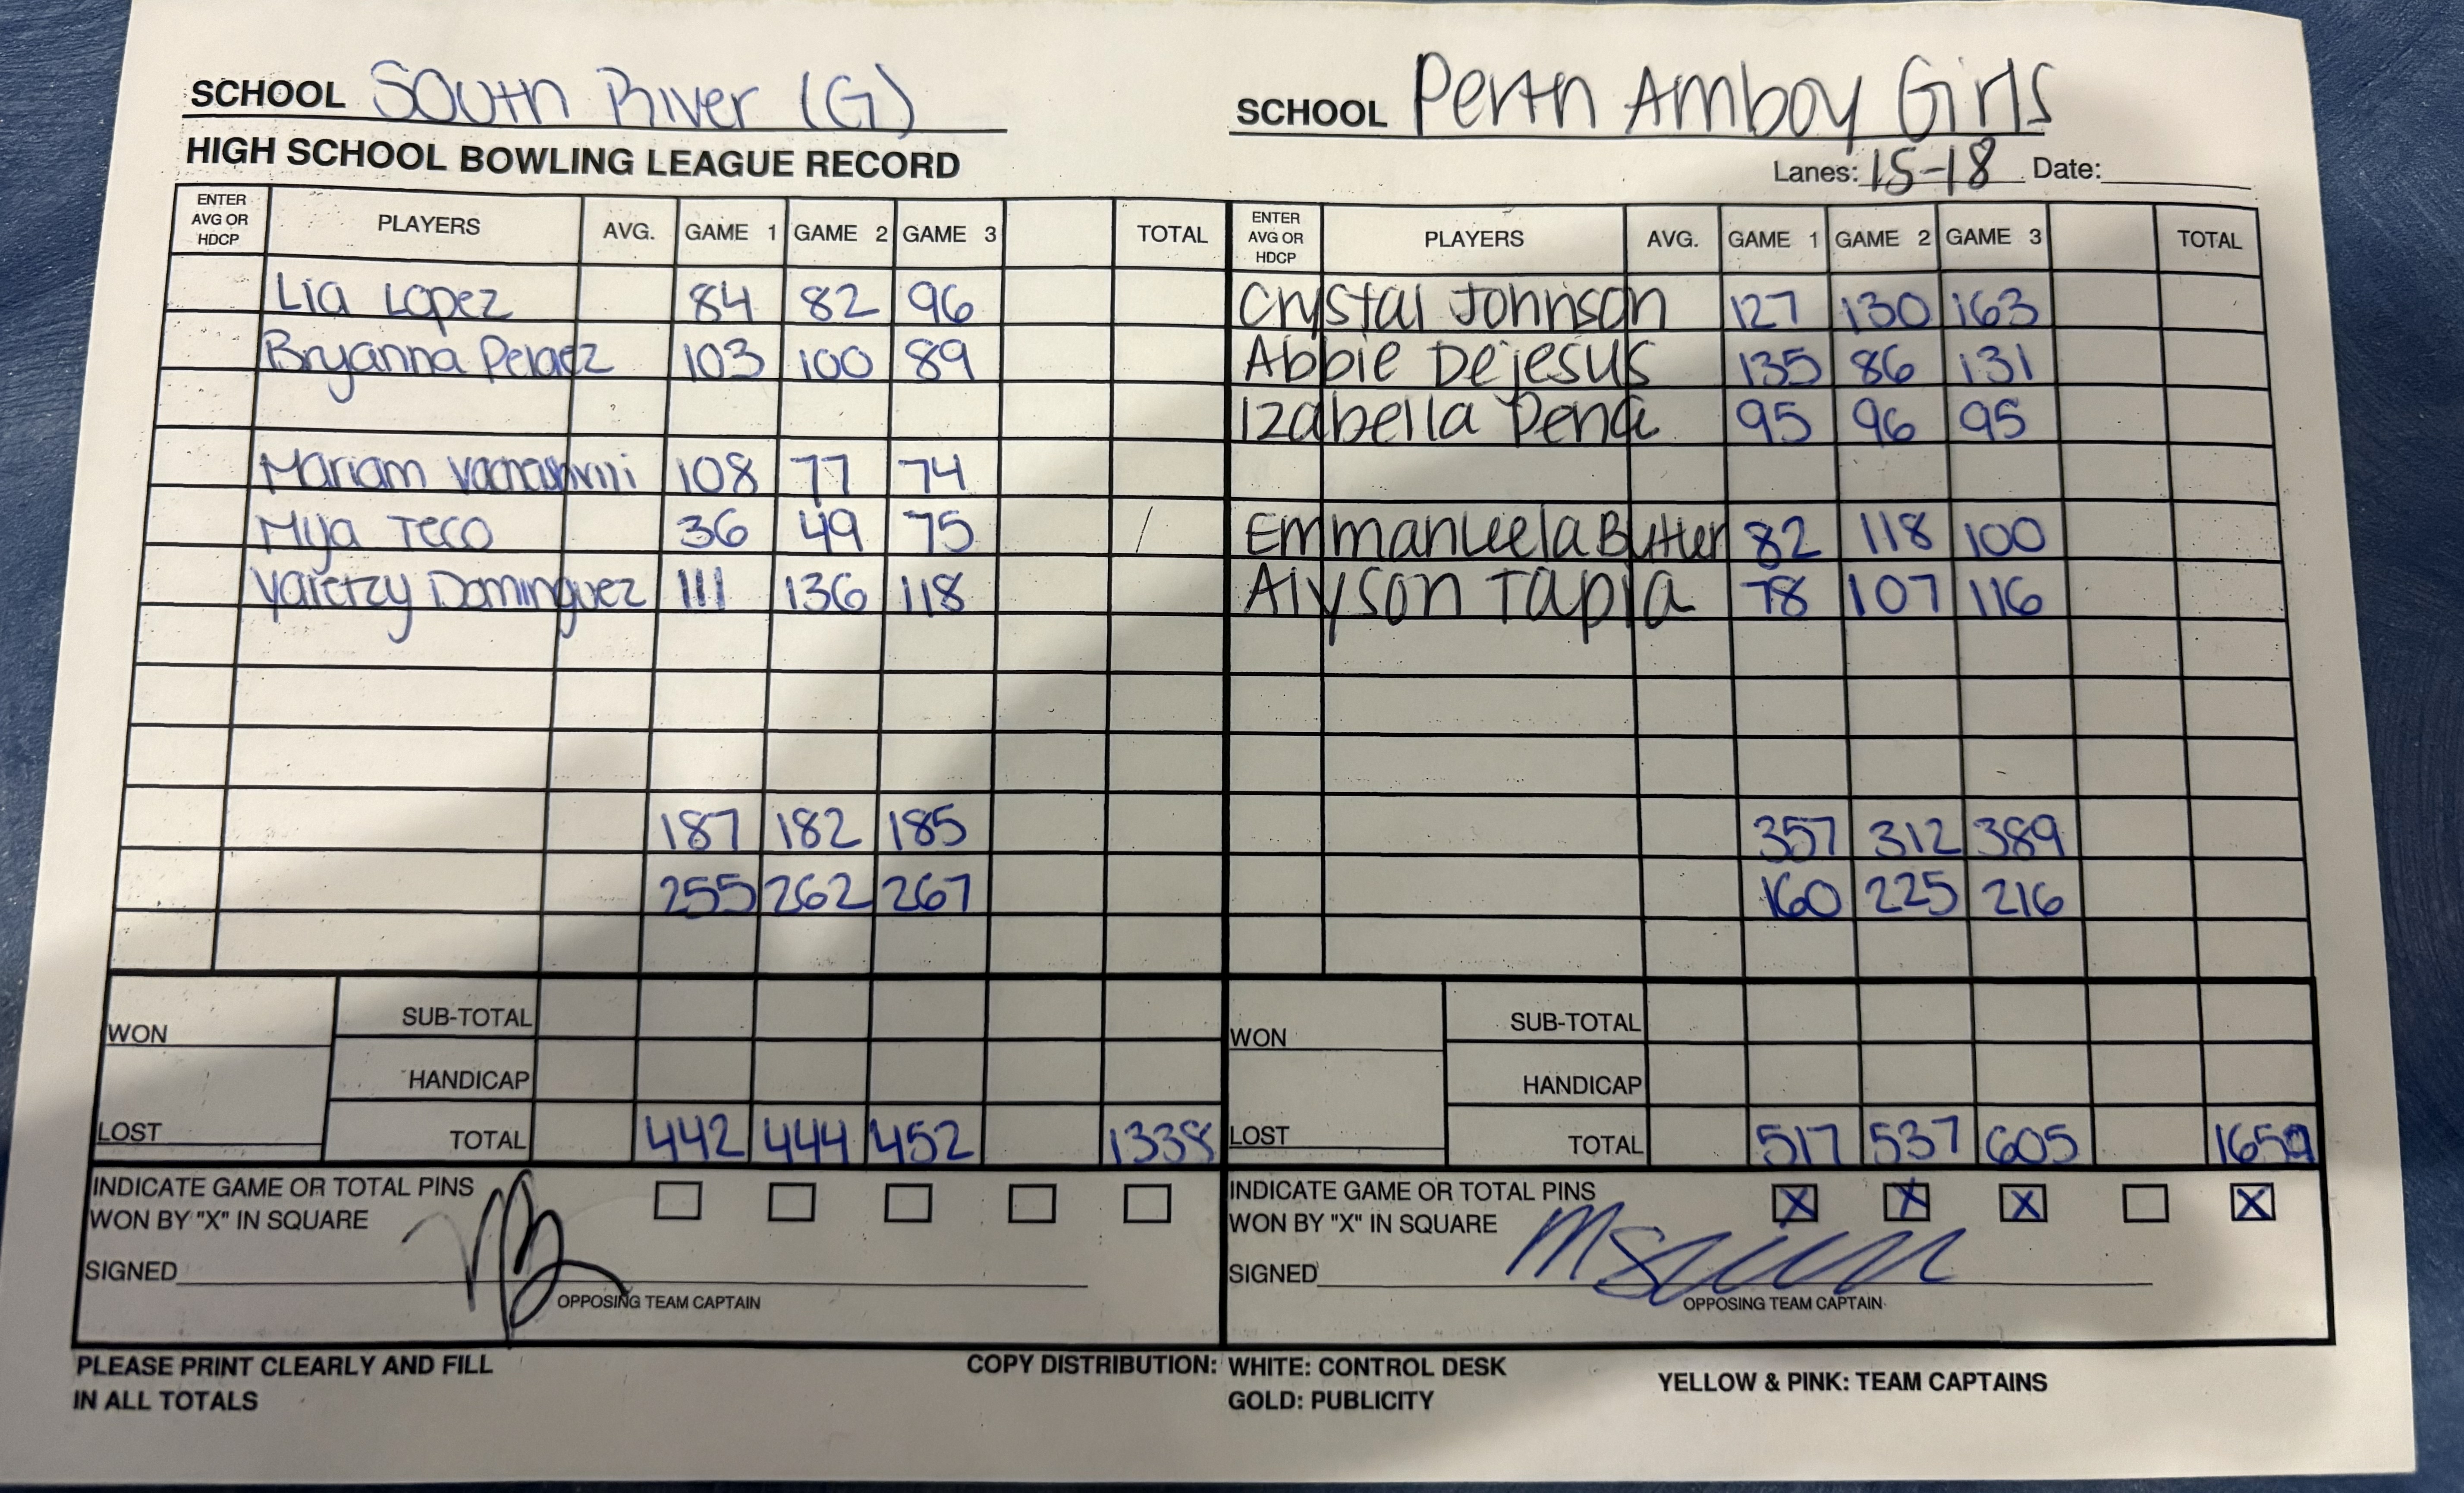 SCHOOL South River (G)
SCHOOL Perth Amboy Girls
HIGH SCHOOL BOWLING LEAGUE RECORD
Lanes: 15-18 Date:
ENTER AVG OR HDCP PLAYERS AVG. GAME 1 GAME 2 GAME 3 TOTAL ENTER AVG OR HDCP PLAYERS AVG. GAME 1 GAME 2 GAME 3 TOTAL
Lia Lopez 84 82 96 Crystal Johnson 127 130 163
Bryanna Pelaez 103 100 89 Abbie Dejesus 135 86 131
Izabella Pena 95 96 95
Mariam 108 77 74
Mya Teco 36 49 75 / Emmanueela Butler 82 118 100
Yaretzy Dominguez 111 136 118 Alyson Tapia 78 107 116
187 182 185 357 312 389
255 262 267 160 225 216
WON SUB-TOTAL WON SUB-TOTAL
HANDICAP HANDICAP
LOST TOTAL 442 444 452 1338 LOST TOTAL 517 537 605 1659
INDICATE GAME OR TOTAL PINS INDICATE GAME OR TOTAL PINS
WON BY "X" IN SQUARE WON BY "X" IN SQUARE X X X X
SIGNED SIGNED
OPPOSING TEAM CAPTAIN OPPOSING TEAM CAPTAIN
PLEASE PRINT CLEARLY AND FILL COPY DISTRIBUTION: WHITE: CONTROL DESK YELLOW & PINK: TEAM CAPTAINS
IN ALL TOTALS GOLD: PUBLICITY